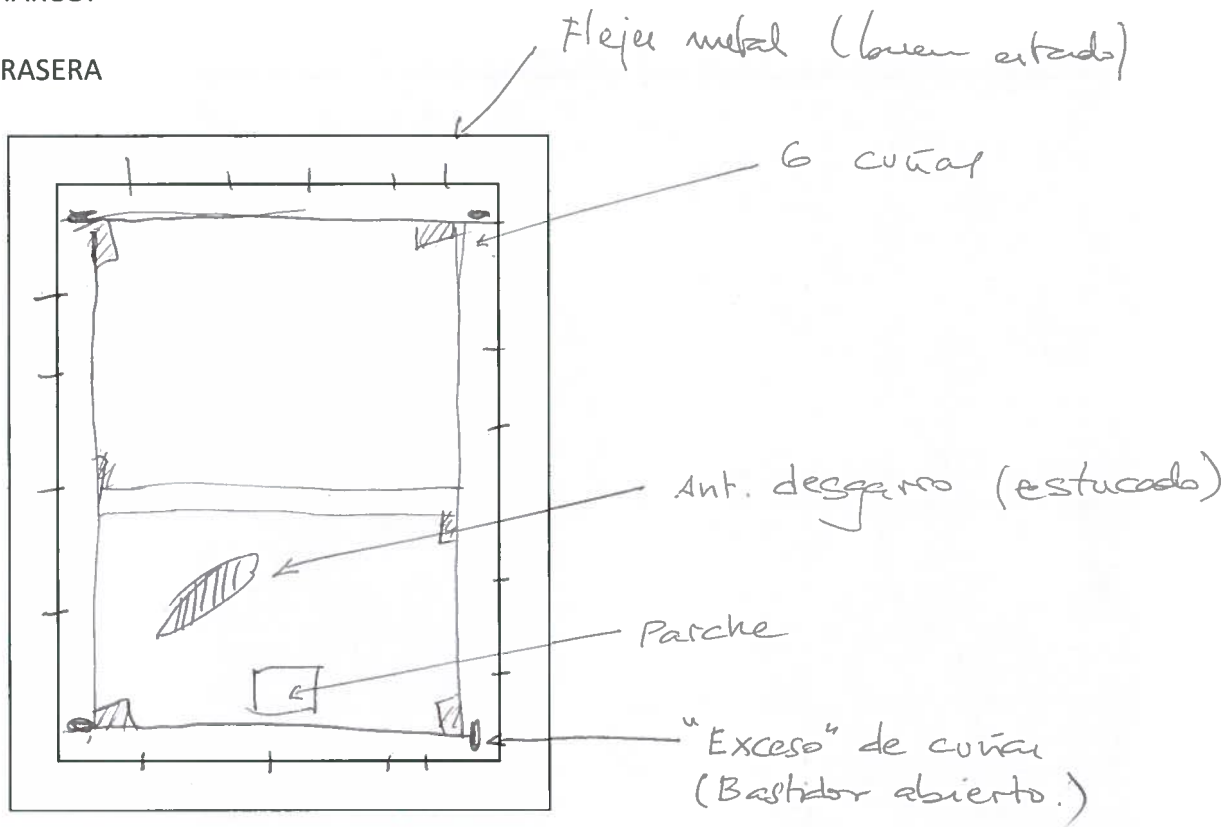 RASERA
Flejes metal (buen estado)
6 cuñas
Ant. desgarro (estucado)
Parche
"Exceso" de cuñas
(Bastidor abierto.)